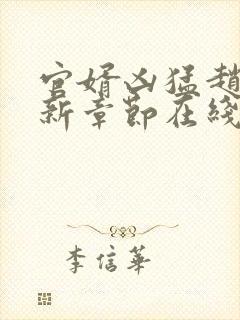 官婿凶猛趙
新章節在綫
李信華